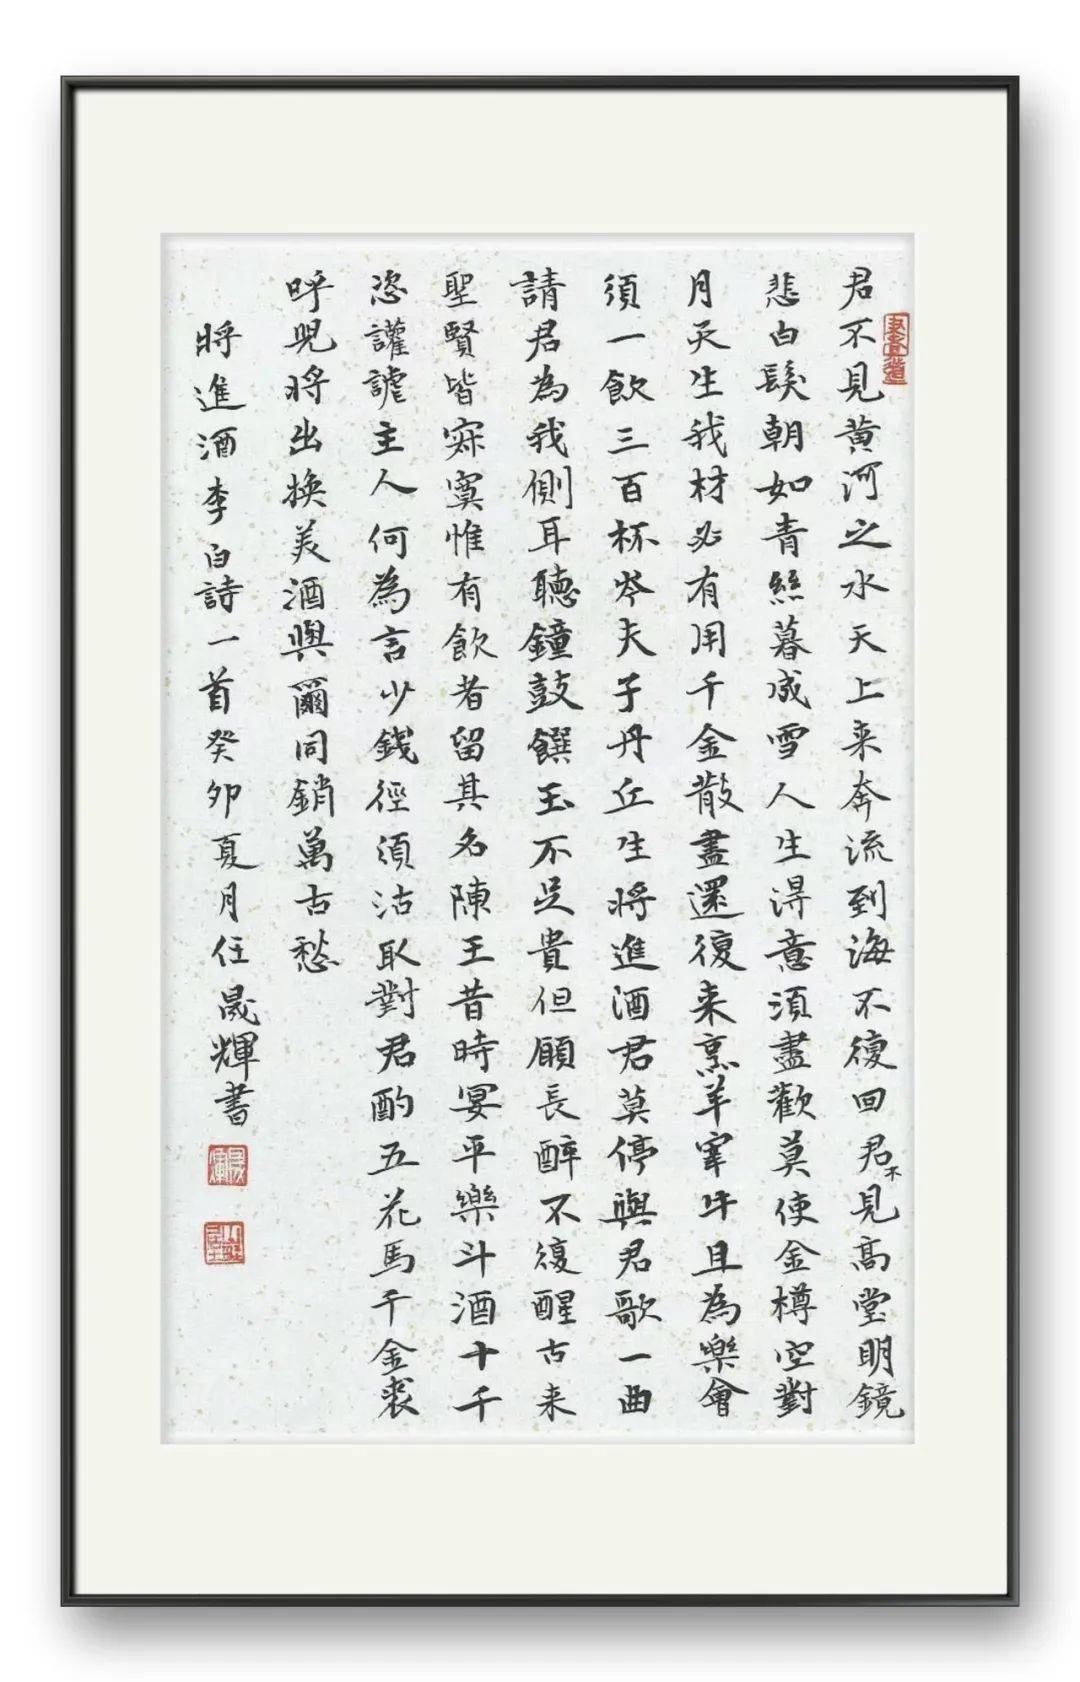 君不見黄河之水天上来奔流到海不復回君不見高堂明鏡
悲白髮朝如青絲暮成雪人生得意須盡歡莫使金樽空對
月天生我材必有用千金散盡還復来烹羊宰牛且為樂會
須一飲三百杯岑夫子丹丘生將進酒君莫停與君歌一曲
請君為我側耳聽鐘鼓饌玉不足貴但願長醉不復醒古来
聖賢皆寂寞惟有飲者留其名陳王昔時宴平樂斗酒十千
恣讙謔主人何為言少錢徑須沽取對君酌五花馬千金裘
呼兒將出換美酒與爾同銷萬古愁
將進酒李白詩一首癸卯夏月任晟輝書